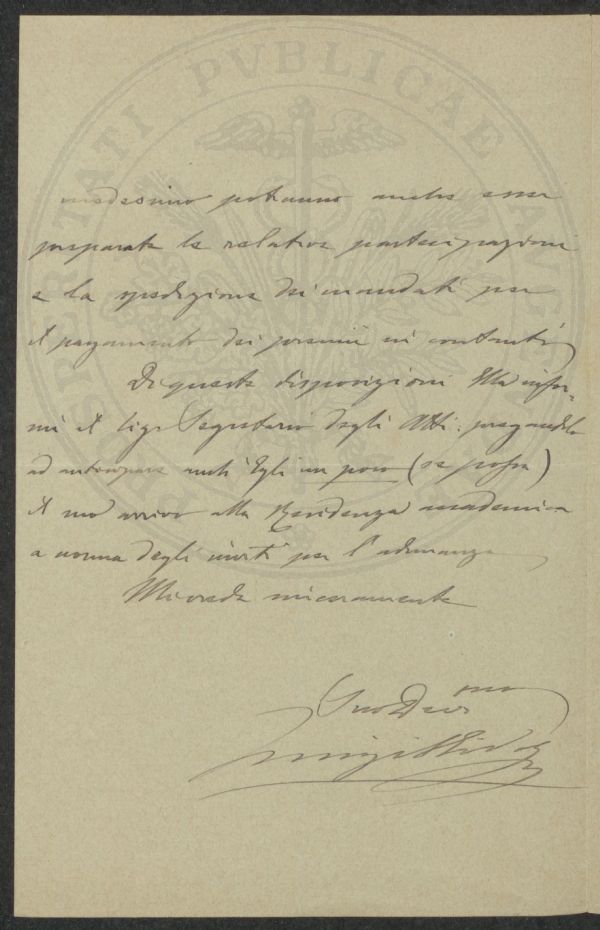 PROSPERITATI PVBLICAE AVGENDAE
medesimo potranno anche esser
preparate le relative partecipazioni
e la spedizione dei mandati per
il pagamento dei premii in contanti.
Di queste disposizioni Ella infor-
mi il Sigr Segretario degli Atti, pregandolo
ad anticipare anch'Egli un poco (se possa)
il suo arrivo alla Residenza accademica
a norma degli inviti per l'adunanza
Mi creda sinceramente
Suo Devmo
Luigi